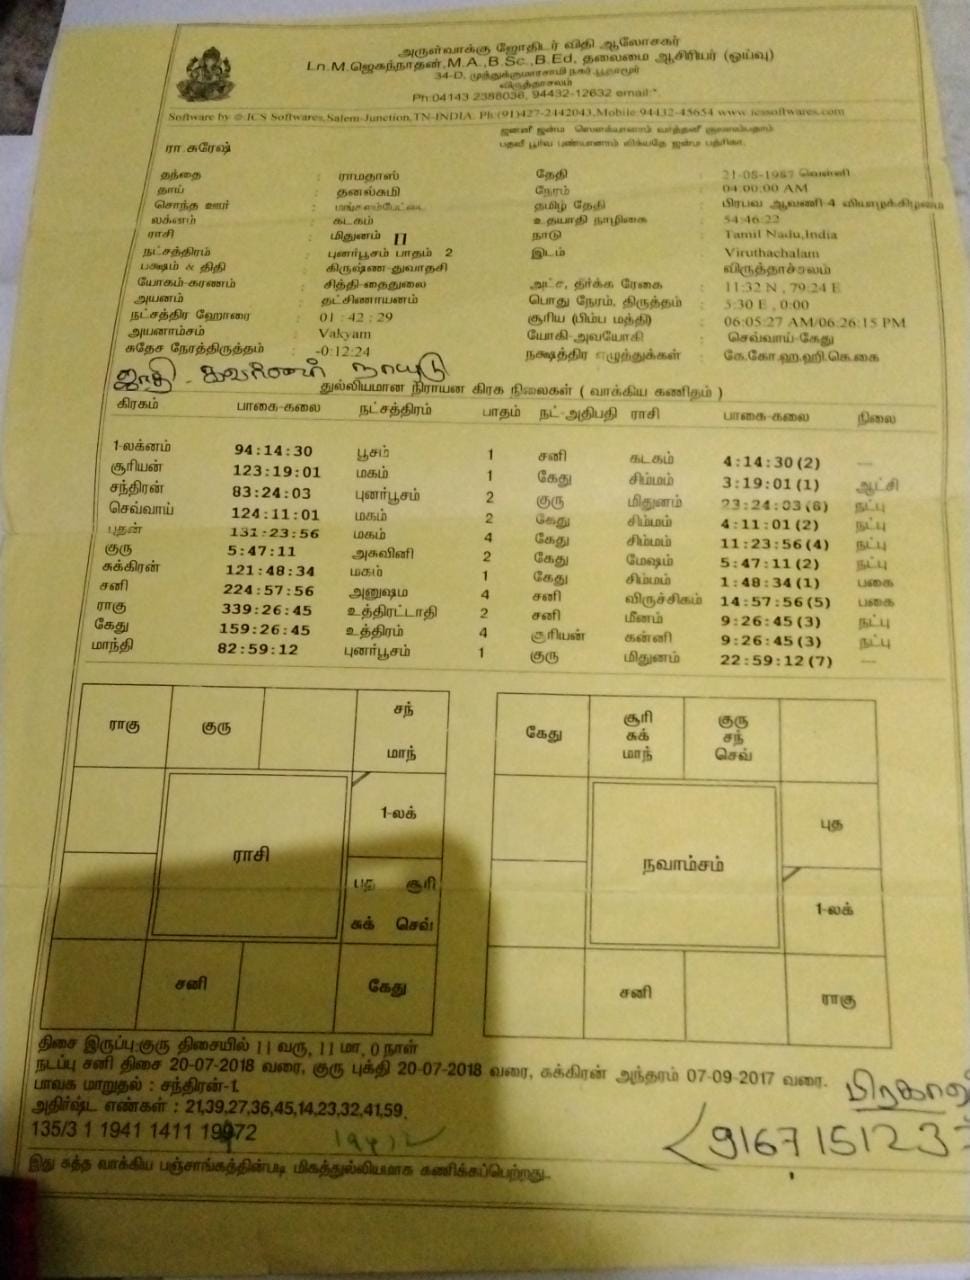 அருள்வாக்கு ஜோதிடர் விதி ஆலோசகர்
Ln.M.ஜெகந்நாதன்,M.A.,B.Sc.,B.Ed, தலைமை ஆசிரியர் (ஓய்வு)
34-D, முத்துக்குமாரசாமி நகர்
விருத்தாசலம்
Ph:04143 2388036, 94432-12632 email:*.
Software by @ ICS Softwares,Salem-Junction,TN-INDIA. Ph:(91)427-2442043,Mobile:94432-45654 www.icssoftwares.com
ஜனனீ ஜன்ம ஸௌக்யானாம் வர்த்தனீ குலஸம்பதாம்
பதவீ பூர்வ புண்யானாம் லிக்யதே ஜன்ம பத்ரிகா.
ரா.சுரேஷ்
தந்தை : ராமதாஸ் தேதி : 21-08-1987 வெள்ளி
தாய் : தனலசுமி நேரம் : 04:00:00 AM
சொந்த ஊர் : மங்கலம்பேட்டை தமிழ் தேதி : பிரபவ ஆவணி-4 வியாழக்கிழமை
லக்னம் : கடகம் உதயாதி நாழிகை : 54:46:22
ராசி : மிதுனம் II நாடு : Tamil Nadu,India
நட்சத்திரம் : புனர்பூசம் பாதம் 2 இடம் : Viruthachalam
பக்ஷம் & திதி : கிருஷ்ண-துவாதசி விருத்தாச்சலம்
யோகம்-கரணம் : சித்தி-தைதுலை அட்ச, தீர்க்க ரேகை : 11:32 N , 79:24 E
அயனம் : தட்சிணாயனம் பொது நேரம், திருத்தம் : 5:30 E , 0:00
நட்சத்திர ஹோரை : 01 : 42 : 29 சூரிய (பிம்ப மத்தி) : 06:05:27 AM/06:26:15 PM
அயனாம்சம் : Vakyam யோகி-அவயோகி : செவ்வாய்-கேது
சுதேச நேரத்திருத்தம் : -0:12:24 நக்ஷத்திர எழுத்துக்கள் : கே.கோ.ஹ.ஹி.கெ.கை
ஜாதி - நாயுடு
துல்லியமான நிராயன கிரக நிலைகள் ( வாக்கிய கணிதம் )
கிரகம் பாகை-கலை நட்சத்திரம் பாதம் நட்-அதிபதி ராசி பாகை-கலை நிலை
1-லக்னம் 94:14:30 பூசம் 1 சனி கடகம் 4:14:30(2) ---
சூரியன் 123:19:01 மகம் 1 கேது சிம்மம் 3:19:01(1) ஆட்சி
சந்திரன் 83:24:03 புனர்பூசம் 2 குரு மிதுனம் 23:24:03(8) நட்பு
செவ்வாய் 124:11:01 மகம் 2 கேது சிம்மம் 4:11:01(2) நட்பு
புதன் 131:23:56 மகம் 4 கேது சிம்மம் 11:23:56(4) நட்பு
குரு 5:47:11 அசுவினி 2 கேது மேஷம் 5:47:11(2) நட்பு
சுக்கிரன் 121:48:34 மகம் 1 கேது சிம்மம் 1:48:34(1) பகை
சனி 224:57:56 அனுஷம் 4 சனி விருச்சிகம் 14:57:56(5) பகை
ராகு 339:26:45 உத்திரட்டாதி 2 சனி மீனம் 9:26:45(3) நட்பு
கேது 159:26:45 உத்திரம் 4 சூரியன் கன்னி 9:26:45(3) நட்பு
மாந்தி 82:59:12 புனர்பூசம் 1 குரு மிதுனம் 22:59:12(7) ---
ராகு குரு சந்
மாந்
1-லக்
ராசி
புத சூரி
சுக் செவ்
சனி கேது
கேது சூரி குரு
சுக் சந்
மாந் செவ்
புத
நவாம்சம்
1-லக்
சனி ராகு
திசை இருப்பு:குரு திசையில் 11 வரு, 11 மா, 0 நாள்
நடப்பு சனி திசை 20-07-2018 வரை, குரு புக்தி 20-07-2018 வரை, சுக்கிரன் அந்தரம் 07-09-2017 வரை.
பாவக மாறுதல் : சந்திரன்-1.
அதிர்ஷ்ட எண்கள் : 21,39,27,36,45,14,23,32,41,59,
135/3 1 1941 1411 19972
19412
இது சுத்த வாக்கிய பஞ்சாங்கத்தின்படி மிகத்துல்லியமாக கணிக்கப்பெற்றது..
916715123